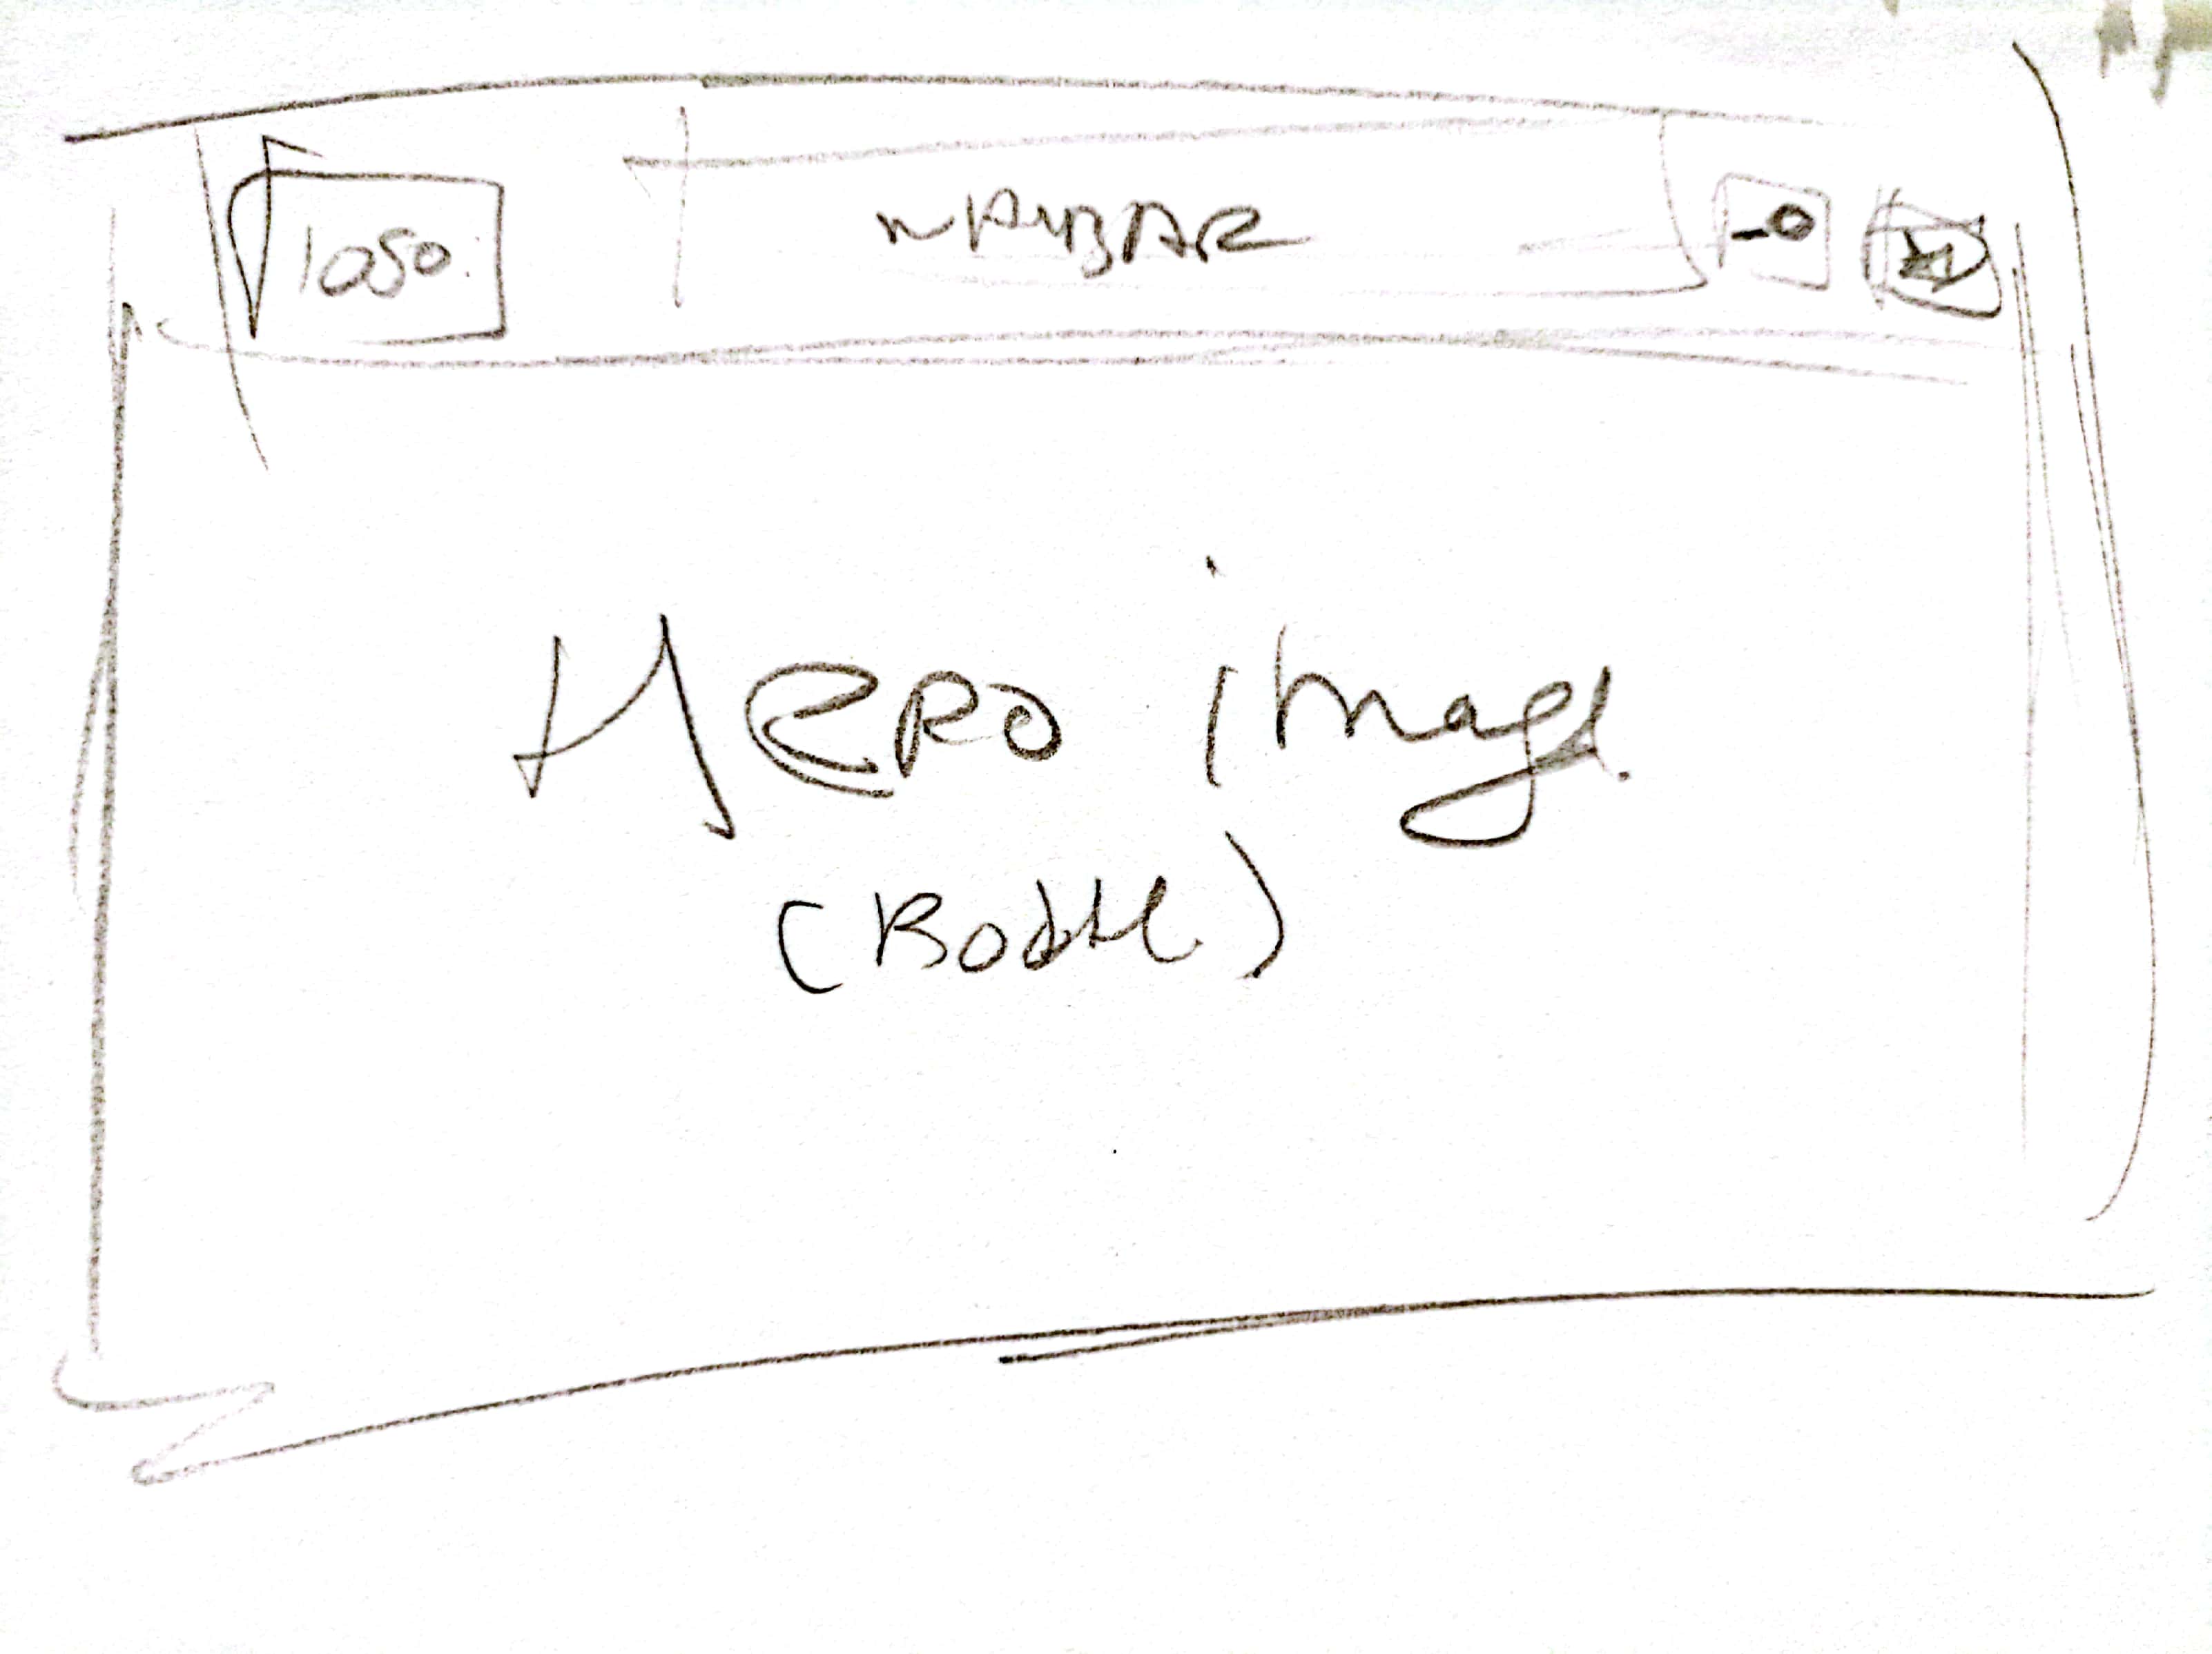 logo
NAVBAR
HERO image.
(Bottle)